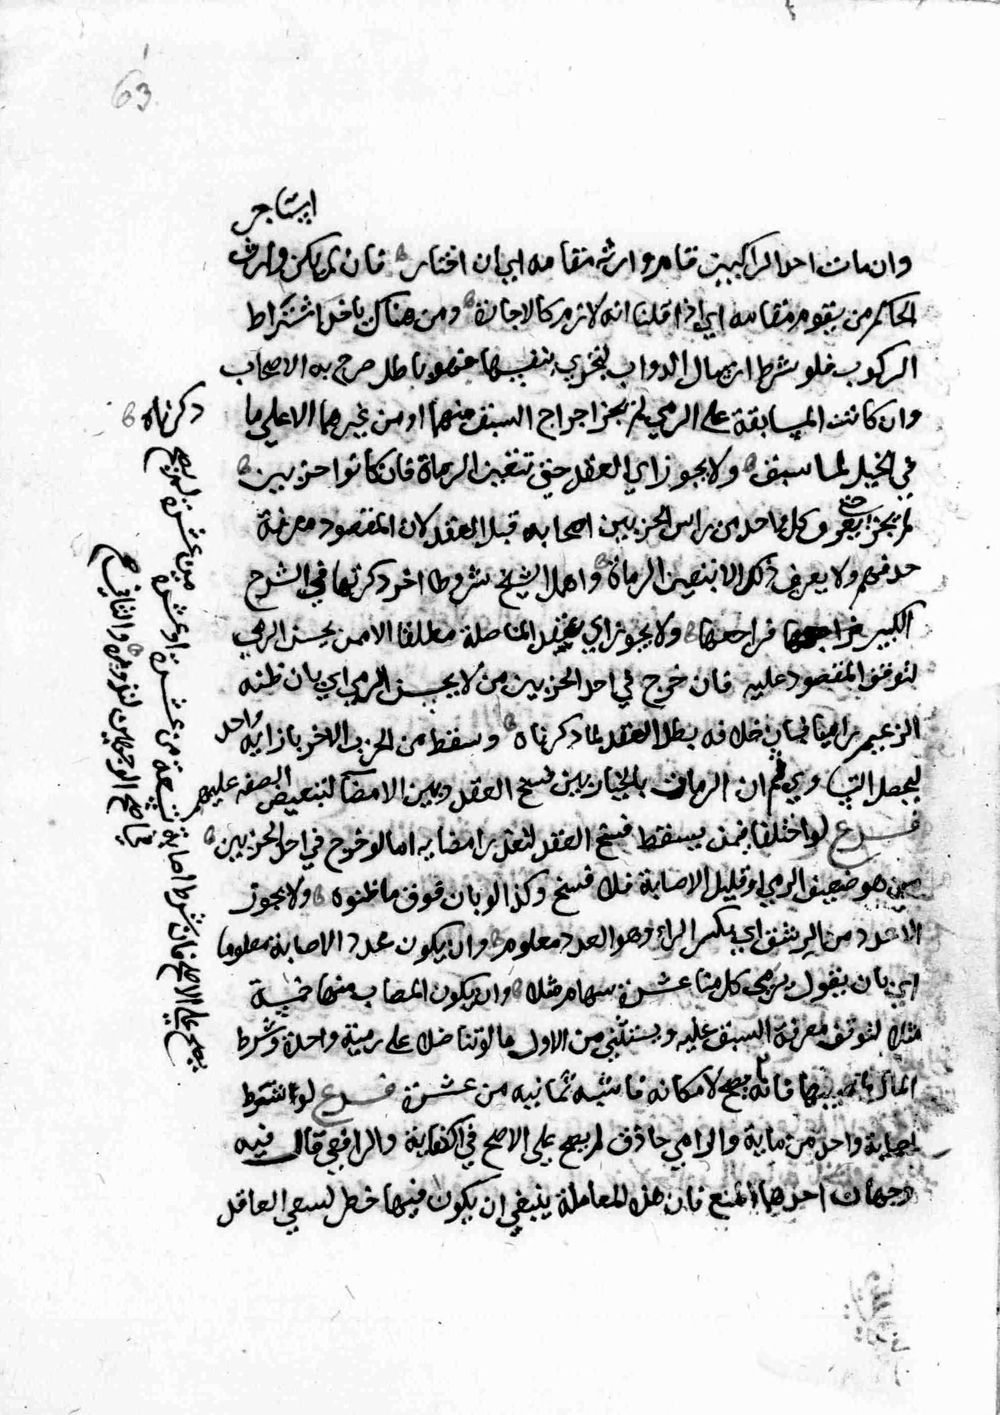 63
استاجر
وان مات احد الراكبين قام وارثه مقامه اي ان اختار فان لم يكن وارث
الحاكم من يقوم مقامه اي اذا قلنا انه لازم كالاجارة ومن هناك ياخذ اشتراط
الركوب فلو شرط ارسال الدواب لتجري بنفسها فهو باطل صرح به الاصحاب
وان كانت المسابقة على الرمي لم يجز اخراج السبق منهما او من غيرهما الا على ما
ذكرناه
في الخيل لما سبق ولا يجوز اي العقد حتى تتعين الرماة فان كانوا حزبين
لم يجز حتى يعرف كل واحد من راس الحزبين اصحابه قبل العقد لان المقصود معرفة
حذقهم ولا يعرف ذلك الا بتعيين الرماة واهمل الشيخ شروطا اخر ذكرتها في الشرح
الكبير فراجعها ولا يجوز اي عقد المناضلة مطلقا الا ممن يحسن الرمي
لتوقف المقصود عليه فان خرج في احد الحزبين من لا يحسن الرمي اي بان ظنه
الزعيم راميا فبان خلافه بطل العقد لما ذكرناه وسقط من الحزب الاخر بازايه واحد
ليحصل التساوي ثم ان الرماة بالخيار بين فسخ العقد وبين الامضا لتبعيض الصفقة عليهم
فرع لو اختلفا فيمن يسقط فسخ العقد لتعذر امضايه اما لو خرج في احد الحزبين
من هو ضعيف الرمي او قليل الاصابة فلا فسخ وكذا لو بان فوق ما ظنوه ولا يجوز
الا عدد من الرشق اي بكسر الراء وهو العدد معلوم وان يكون عدد الاصابة معلوما
اي بان يقول يرمي كل منا عشرة سهام مثلا وان يكون المصاب منها خمسة
مثلا لتوقف معرفة السبق عليه ويستثنى من الاول ما لو تناضلا على رمية واحدة وشرط
المال لمصيبها فانه يصح لامكانه فاشبه ثمانية من عشرة فرع لو اشترط
اصابة واحد من ماية والرامي حاذق لم يصح على الاصح في الكفاية والرافعي قال فيه
وجهان احدهما المنع فان هذه المعاملة ينبغي ان يكون فيها خطر لسعي العاقد
عشرة من عشرة او عشرة
يصح على الاصح فان شرط اصابة تسعة من عشرة
فيه اصح الوجهين لندوره والثاني يصح